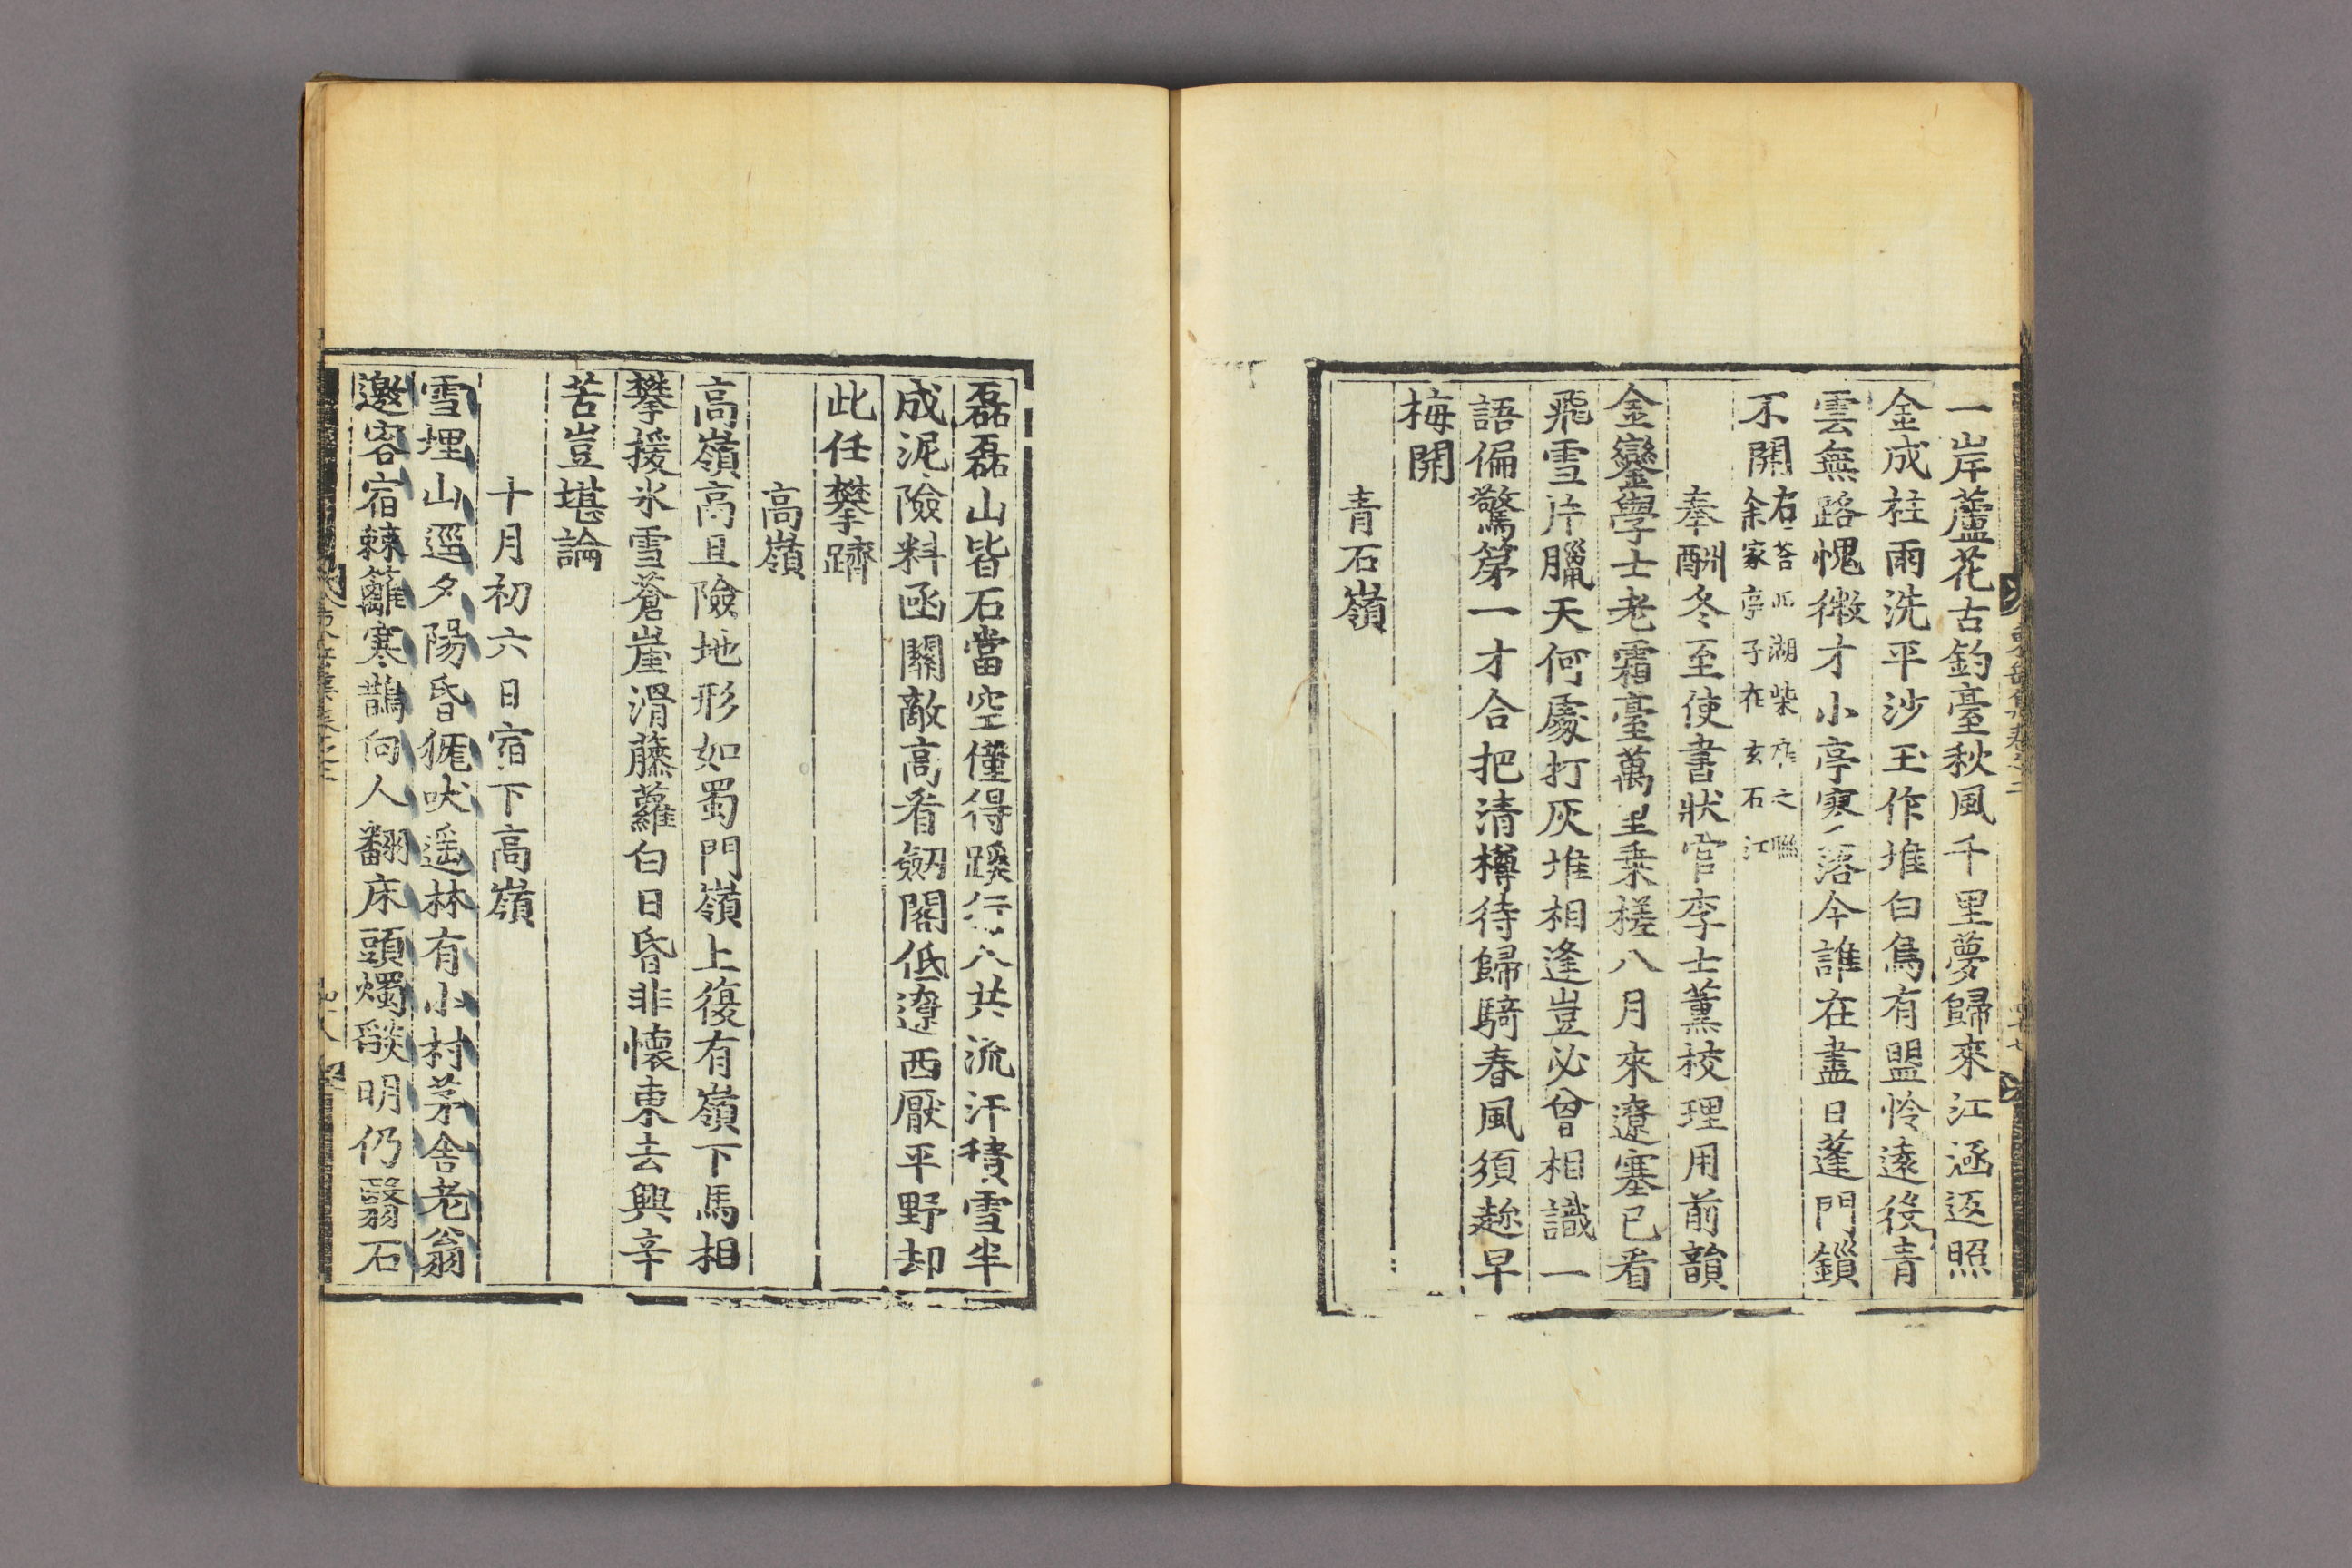 一岸蘆花古釣臺秋風千里夢歸來江涵返照
金成柱雨洗平沙玉作堆白鳥有盟怜遠役青
雲無路愧微才小亭寥落今誰在盡日蓬門鎖
不開
右荅西湖柴之聯
余家亭子在玄石江
奉酬冬至使書狀官李士薰校理用前韻
金鑾學士老霜臺萬里乗槎八月來遼塞已看
飛雪片臘天何處打灰堆相逢豈必曾相識一
語偏驚第一才合把清樽待歸騎春風須趂早
梅開
青石嶺
磊磊山皆石當空僅得蹊行人共流汗積雪半
成泥險料函關敵高看劒閣低遼西厭平野却
此任攀躋
高嶺
高嶺高且險地形如蜀門嶺上復有嶺下馬相
攀援氷雪蒼崖滑藤蘿白日昏非懷東去興辛
苦豈堪論
十月初六日宿下高嶺
雪埋山逕夕陽昏㹸吠遥林有小村茅舍老翁
邀客宿棘籬寒鵲向人翻床頭燭燄明仍翳石